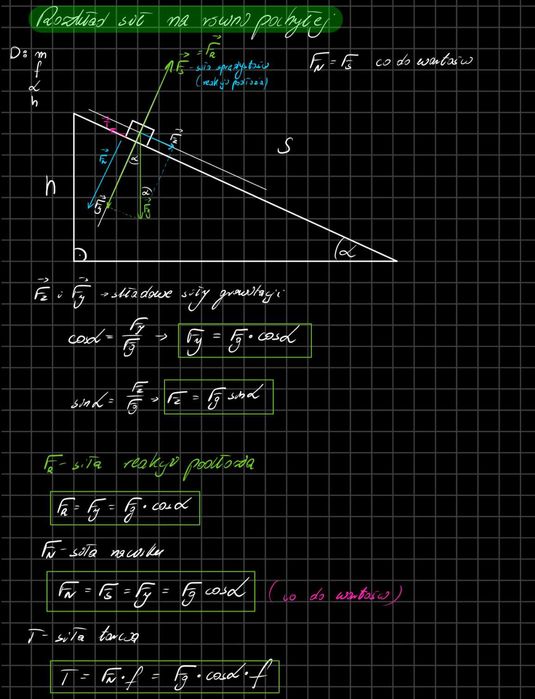 Rozkład sił na równi pochyłej
D: m
f
α
h
F⃗s = F⃗R
- siła sprężystości
(reakcji podłoża)
FN = Fs co do wartości
T⃗
F⃗z
F⃗N
F⃗y
F⃗g
α
α)
S
h
α
F⃗z i F⃗y → składowe siły grawitacji
cosα = Fy/Fg → Fy = Fg · cosα
sinα = Fz/Fg → Fz = Fg sinα
FR - siła reakcji podłoża
FR = Fy = Fg · cosα
FN - siła nacisku
FN = Fs = Fy = Fg cosα (co do wartości)
T - siła tarcia
T = FN · f = Fg · cosα · f